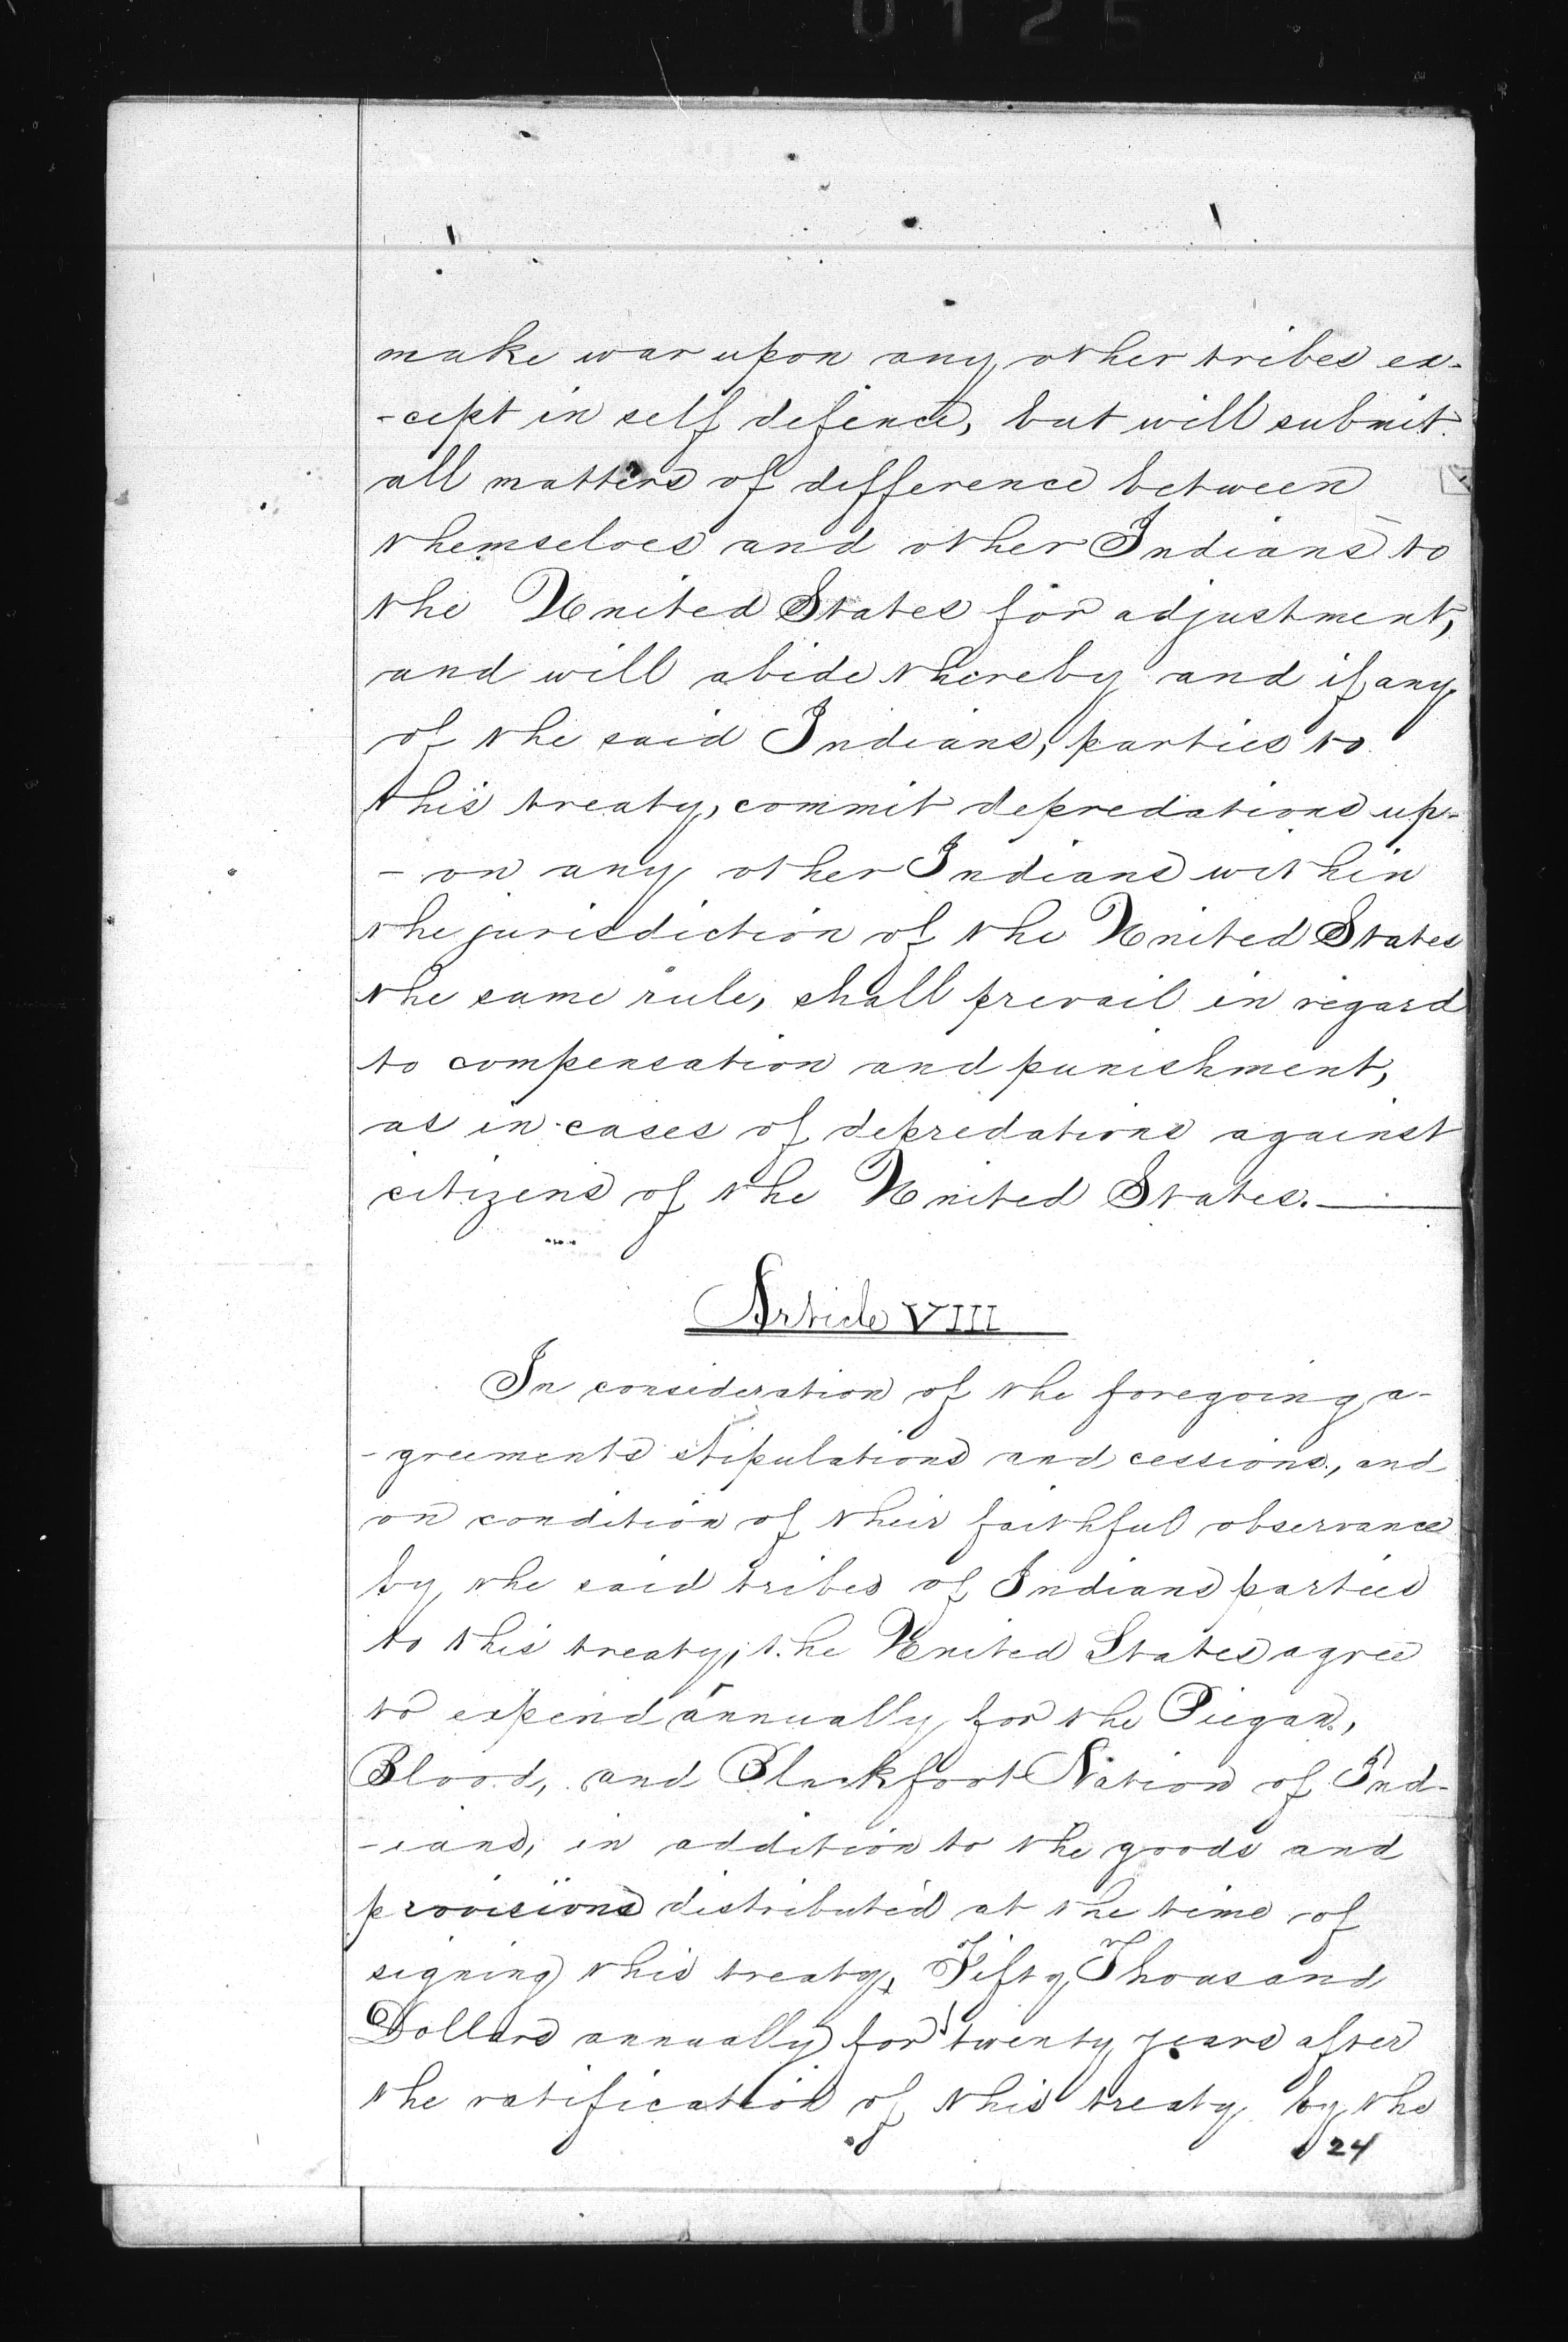 0125
make war upon any other tribes ex-
-cept in self defence, but will submit
all matters of difference between
themselves and other Indians to
the United States for adjustment,
and will abide thereby and if any
of the said Indians, parties to
this treaty, commit depredations up-
-on any other Indians within
the jurisdiction of the United States
the same rule, shall prevail in regard
to compensation and punishment,
as in cases of depredations against
citizens of the United States.
Article VIII
In consideration of the foregoing a-
-greements stipulations and cessions, and
on condition of their faithful observance
by the said tribes of Indians parties
to this treaty, the United States agree
to expend annually for the Piegan,
Blood, and Blackfoot Nation of Ind-
-ians, in addition to the goods and
provisions distributed at the time of
signing this treaty, Fifty Thousand
Dollars annually for twenty years after
the ratification of this treaty by the
24